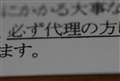 にかかる大事な
必ず代理の方に
ます。